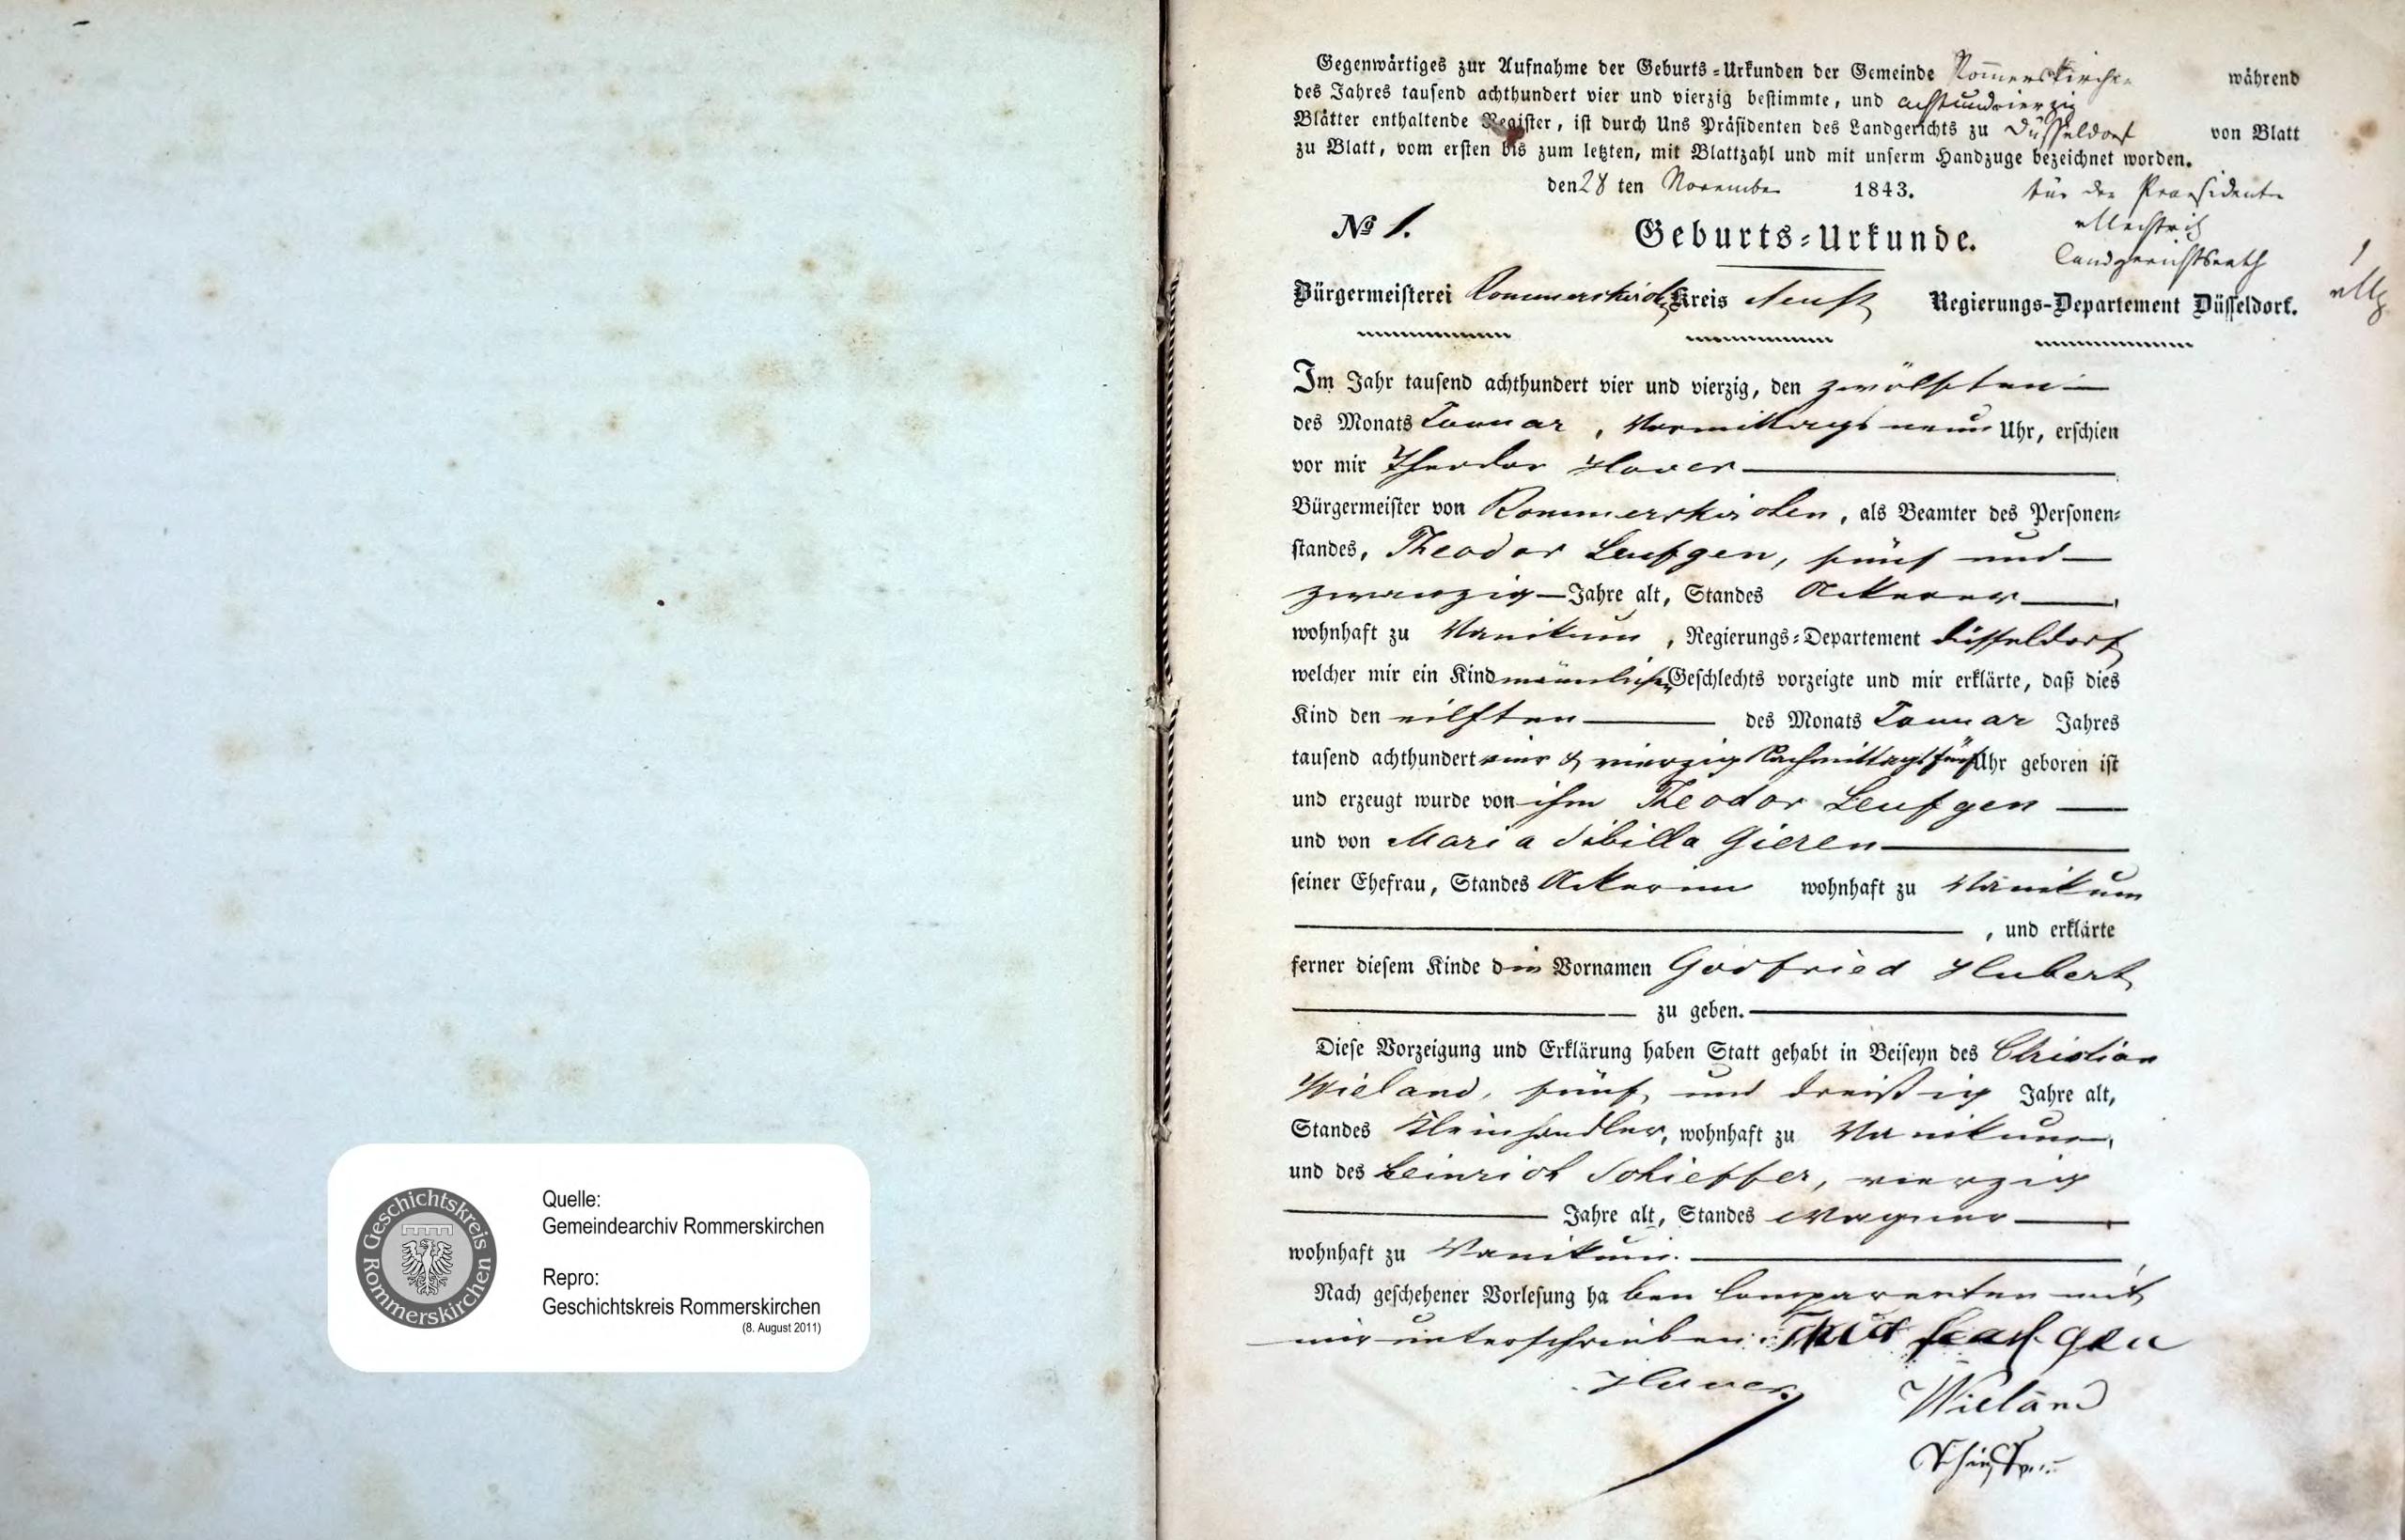 Geschichtskreis Rommerskirchen
Quelle:
Gemeindearchiv Rommerskirchen
Repro:
Geschichtskreis Rommerskirchen
(8. August 2011)
Gegenwärtiges zur Aufnahme der Geburts=Urkunden der Gemeinde Rommerskirchen während
des Jahres tausend achthundert vier und vierzig bestimmte, und achtundvierzig
Blätter enthaltende Register, ist durch Uns Präsidenten des Landgerichts zu Düsseldorf von Blatt
zu Blatt, vom ersten bis zum letzten, mit Blattzahl und mit unserm Handzuge bezeichnet worden.
den 28 ten November 1843. für den Praesidenten
Landgerichtsrath
1
№ 1. Geburts=Urkunde.
Bürgermeisterei Rommerskirchen Kreis Neuss Regierungs-Departement Düsseldorf.
Im Jahr tausend achthundert vier und vierzig, den zwölften
des Monats Januar, Vormittags neun Uhr, erschien
vor mir Theodor Hover
Bürgermeister von Rommerskirchen, als Beamter des Personen=
standes, Theodor Leufgen, fünf und
zwanzig Jahre alt, Standes Ackerer,
wohnhaft zu Vanikum, Regierungs=Departement Düsseldorf
welcher mir ein Kind männlichen Geschlechts vorzeigte und mir erklärte, daß dies
Kind den eilften des Monats Januar Jahres
tausend achthundert vier & vierzig Nachmittags fünf Uhr geboren ist
und erzeugt wurde von ihm Theodor Leufgen
und von Maria Sibilla Gieren
seiner Ehefrau, Standes Ackerinn wohnhaft zu Vanikum
, und erklärte
ferner diesem Kinde die Vornamen Godfried Hubert
zu geben.
Diese Vorzeigung und Erklärung haben Statt gehabt in Beiseyn des Christian
Wieland, fünf und dreißig Jahre alt,
Standes Kleinhändler, wohnhaft zu Vanikum,
und des Heinrich Schieffer, vierzig
Jahre alt, Standes Wagner,
wohnhaft zu Vanikum.
Nach geschehener Vorlesung haben Comparenten mit
mir unterschrieben. Leufgen
Hover
Wieland